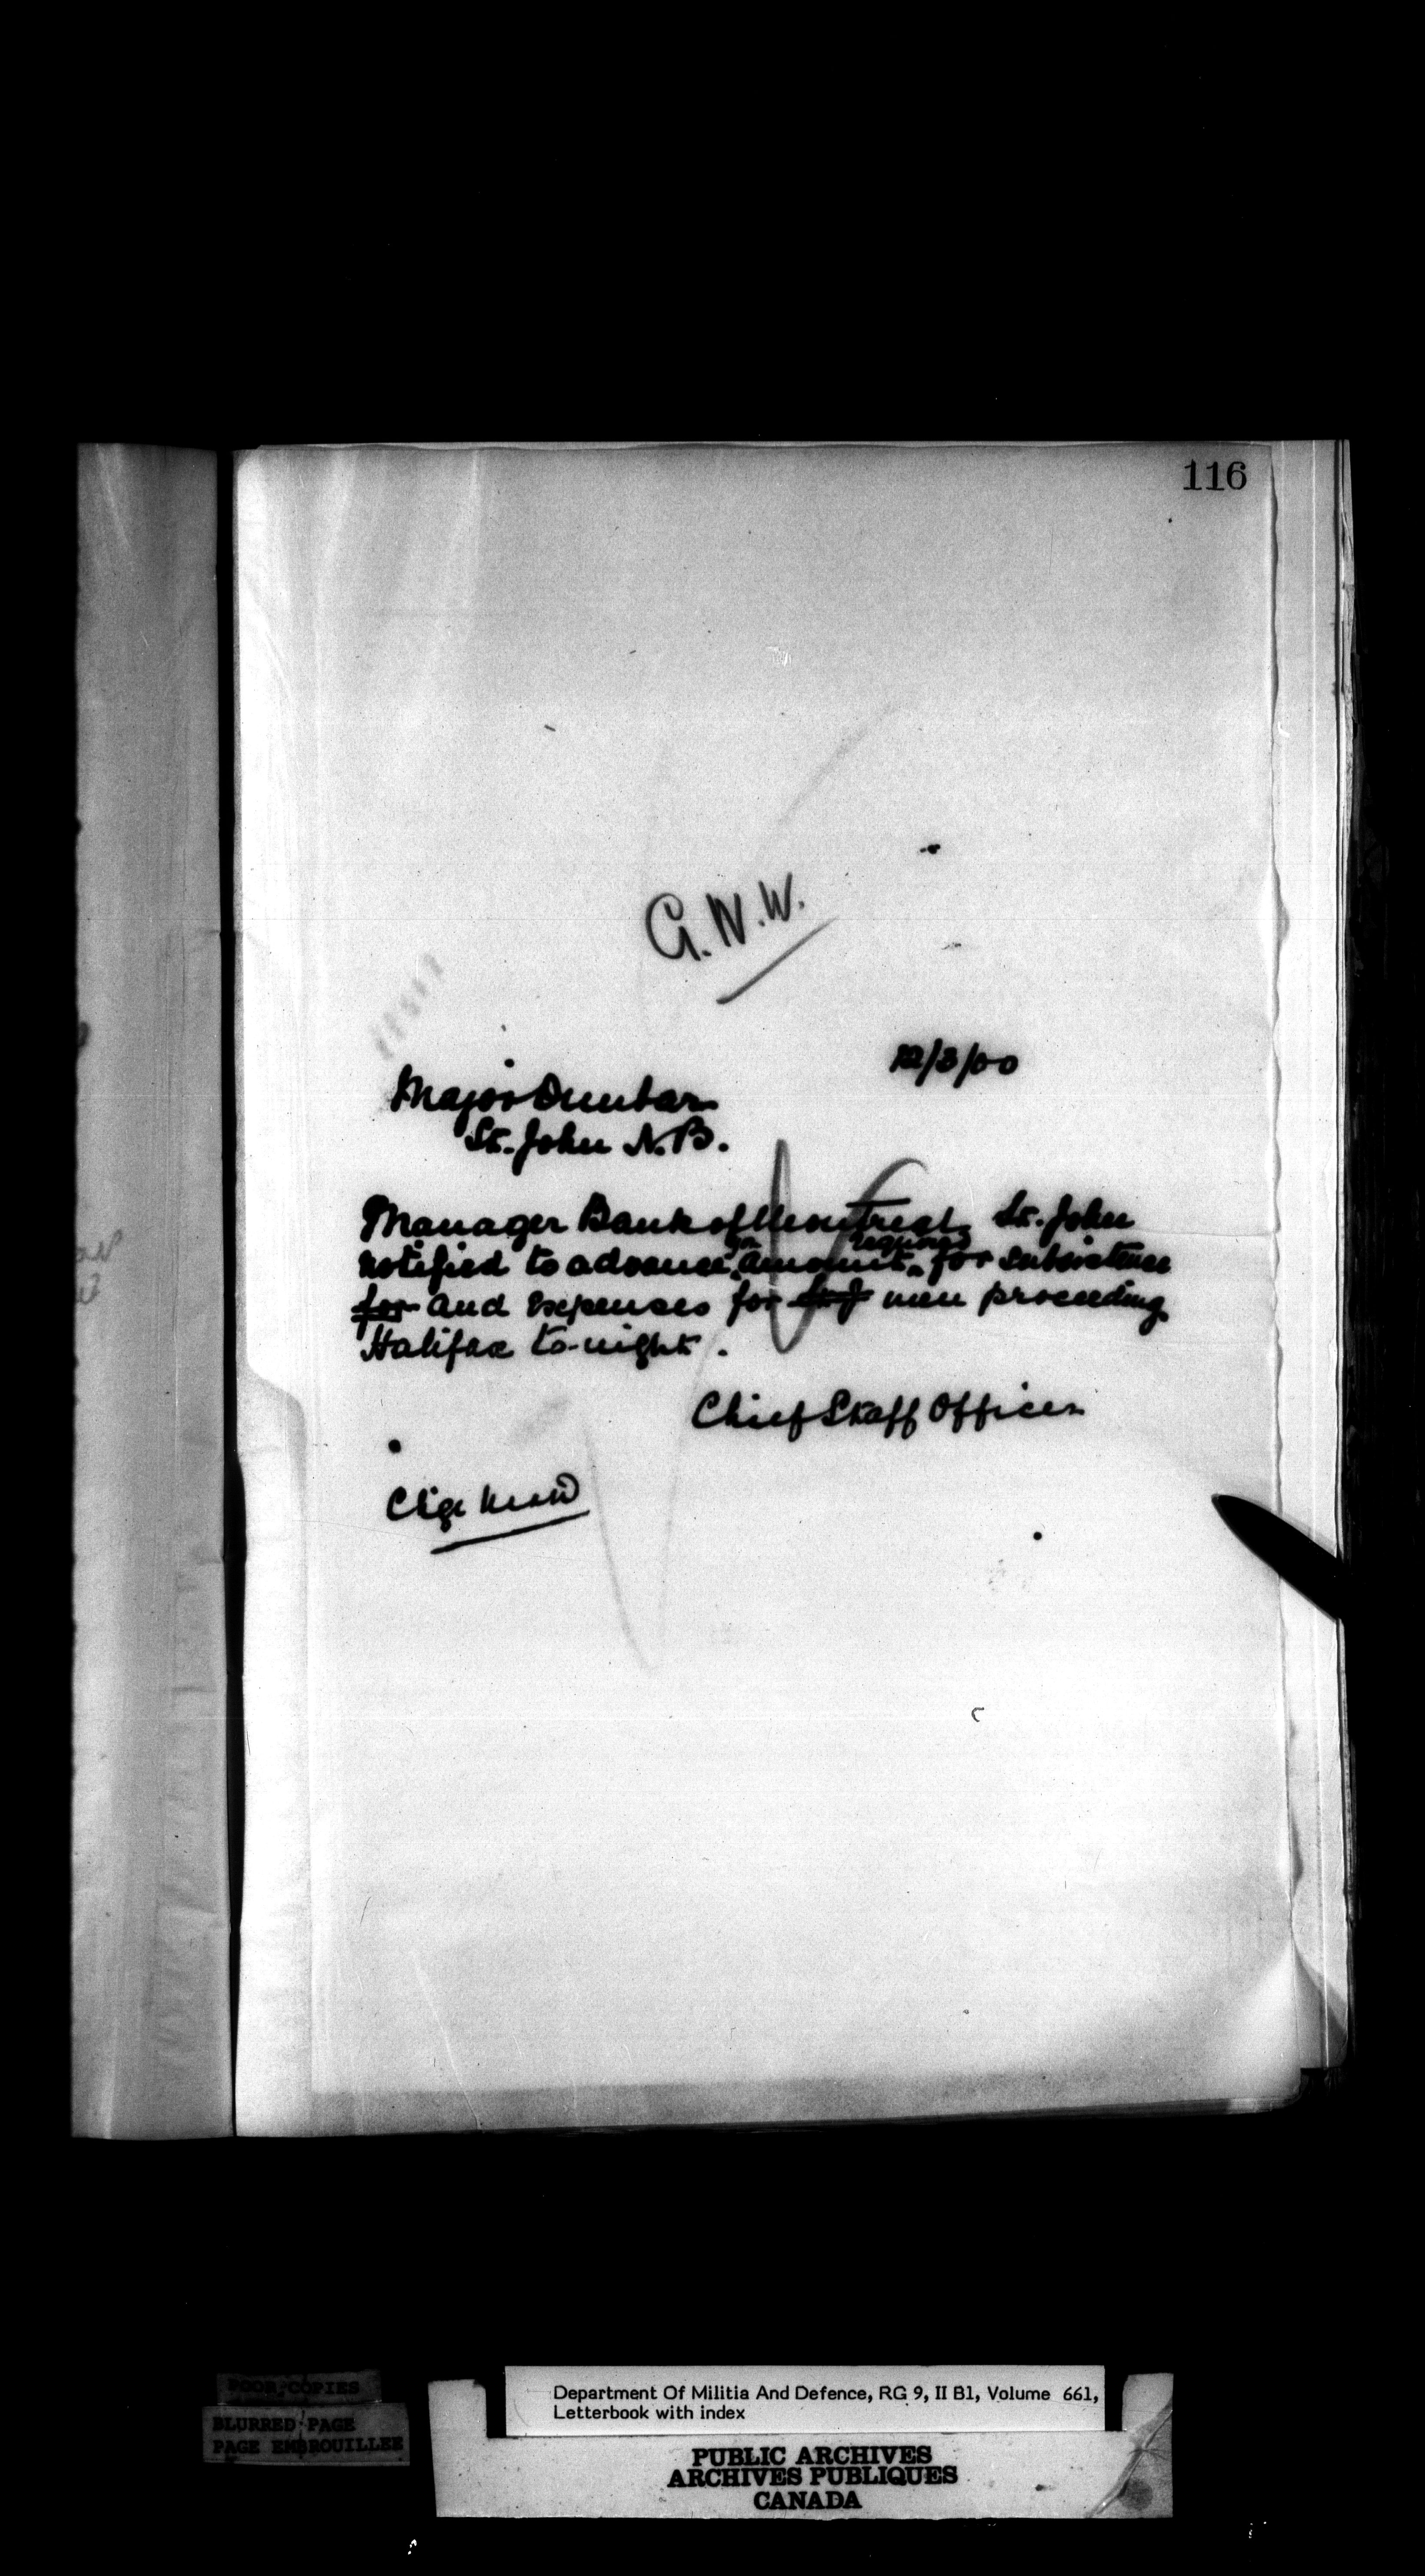 116
G.N.W.
12/3/00
Major Dunbar
St. John N.B.
Manager Bank of Montreal St. John
notified to advance you amount required for subsistence
for and expenses for men proceeding
Halifax to-night.
Chief Staff Officer
Chge M and D
POOR COPIES
BLURRED PAGE
PAGE EMBROUILLEE
Department Of Militia And Defence, RG 9, II B1, Volume 661,
Letterbook with index
PUBLIC ARCHIVES
ARCHIVES PUBLIQUES
CANADA